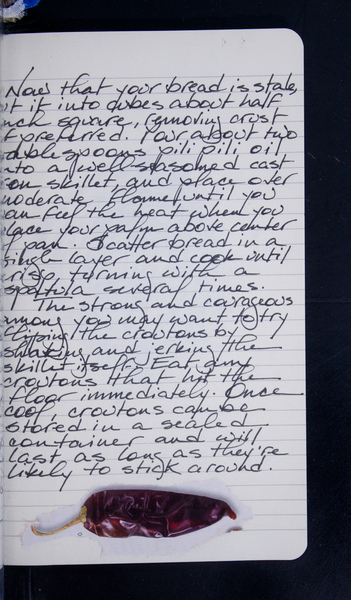 Now that your bread is stale,
ut it into cubes about half
nch square, removing crust
f preferred. Pour about two
ablespoons pili pili oil
nto a well-seasoned cast
ron skillet and place over
moderate flame until you
an feel the heat when you
lace your palm above center
f pan. Scatter bread in a
single layer and cook until
crisp, turning with a
spatula several times.
The strong and courageous
among you may want to try
flipping the croutons by
shaking and jerking the
skillet itself. Eat any
croutons that hit the
floor immediately. Once
cool, croutons can be
stored in a sealed
container and will
last as long as they're
likely to stick around.